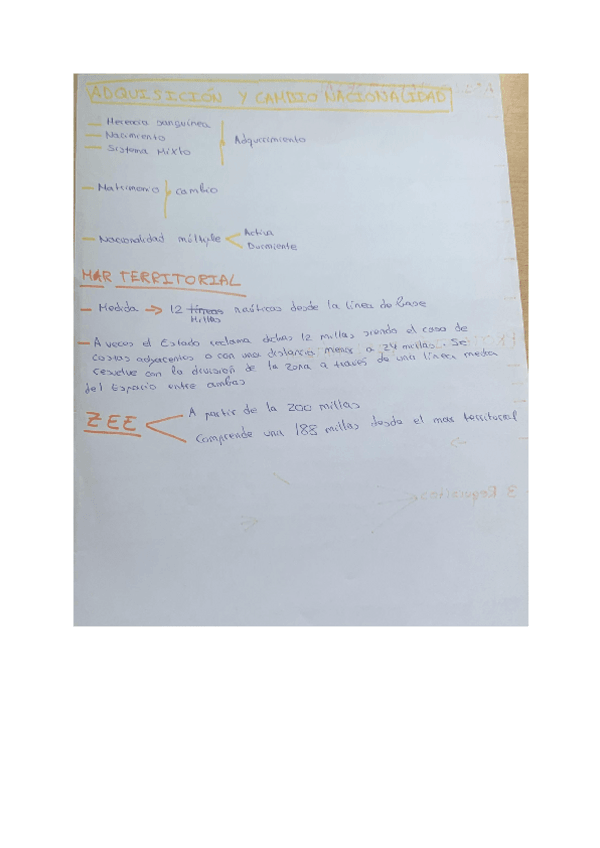 ADQUISICIÓN Y CAMBIO NACIONALIDAD
— Herencia sanguínea
— Nacimiento
— Sistema Mixto
Adquirimiento
— Matrimonio cambio
— Nacionalidad múltiple
Activa
Durmiente
MAR TERRITORIAL
— Medida → 12 líneas náuticas desde la línea de base
Millas
— A veces el Estado reclama dichas 12 millas siendo el caso de
costas adyacentes o con una distancia menor a 24 millas. Se
resuelve con la división de la zona a través de una línea media
del Espacio entre ambas
ZEE
A partir de la 200 millas
Comprende una 188 millas desde el mar territorial